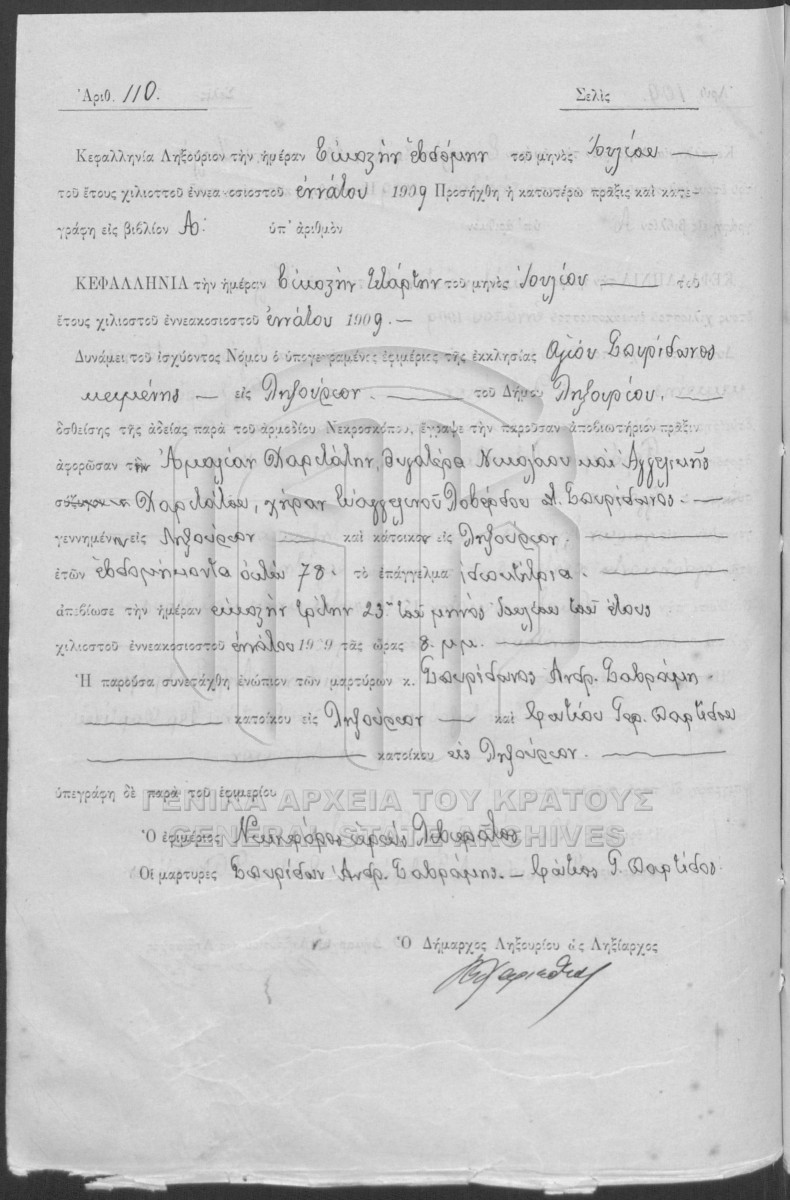 Ἀριθ. 110. Σελὶς
Κεφαλληνία Ληξούριον τὴν ἡμέραν Εἰκοστὴν ἑβδόμην τοῦ μηνὸς Ἰουλίου
τοῦ ἔτους χιλιοττοῦ ἐννεακοσιοστοῦ ἐννάτου 1909 Προσήχθη ἡ κατωτέρω πρᾶξις καὶ κατε-
γράφη εἰς βιβλίον Α: ὑπ᾽ ἀριθμὸν
ΚΕΦΑΛΛΗΝΙΑ τὴν ἡμέραν Εἰκοστὴν τετάρτην τοῦ μηνὸς Ἰουλίου τοῦ
ἔτους χιλιοστοῦ ἐννεακοσιοστοῦ ἐννάτου 1909.
Δυνάμει τοῦ ἰσχύοντος Νόμου ὁ ὑπογεγραμένος ἐφημέριος τῆς ἐκκλησίας Ἁγίου Σπυρίδωνος
κειμένης εἰς Ληξούριον τοῦ Δήμου Ληξουρίου,
δοθείσης τῆς ἀδείας παρὰ τοῦ ἁρμοδίου Νεκροσκόπου, ἔγραψε τὴν παροῦσαν ἀποβιωτήριον πρᾶξιν
ἀφορῶσαν τὴν Ἀμαλίαν θυγατέρα Νικολάου καὶ Ἀγγελικῆς
χήραν Εὐαγγελινοῦ Λοβέρδου Σπυρίδωνος.
γεννημένην εἰς Ληξούριον καὶ κάτοικον εἰς Ληξούριον.
ἐτῶν ἑβδομήκοντα ὀκτώ 78. τὸ ἐπάγγελμα ἰδιοκτήτρια.
ἀπεβίωσε τὴν ἡμέραν εἰκοστὴν τρίτην 23ην τοῦ μηνὸς Ἰουλίου τοῦ ἔτους
χιλιοστοῦ ἐννεακοσιοστοῦ ἐννάτου 1909 τὰς ὥρας 8. μμ.
Ἡ παροῦσα συνετάχθη ἐνώπιον τῶν μαρτύρων κ. Σπυρίδωνος Ἀνδρ. Σαβράμη
κατοίκου εἰς Ληξούριον καὶ Φωτίου
κατοίκου εἰς Ληξούριον.
ὑπεγράφη δὲ παρὰ τοῦ ἐφημερίου
ΓΕΝΙΚΑ ΑΡΧΕΙΑ ΤΟΥ ΚΡΑΤΟΥΣ
Ὁ ἐφημέριος Νικηφόρος ἱερεὺς
GENERAL STATE ARCHIVES
Οἱ μάρτυρες Σπυρίδων Ἀνδρ. Σαβράμης. Φώτιος Γ.
Ὁ Δήμαρχος Ληξουρίου ὡς Ληξίαρχος